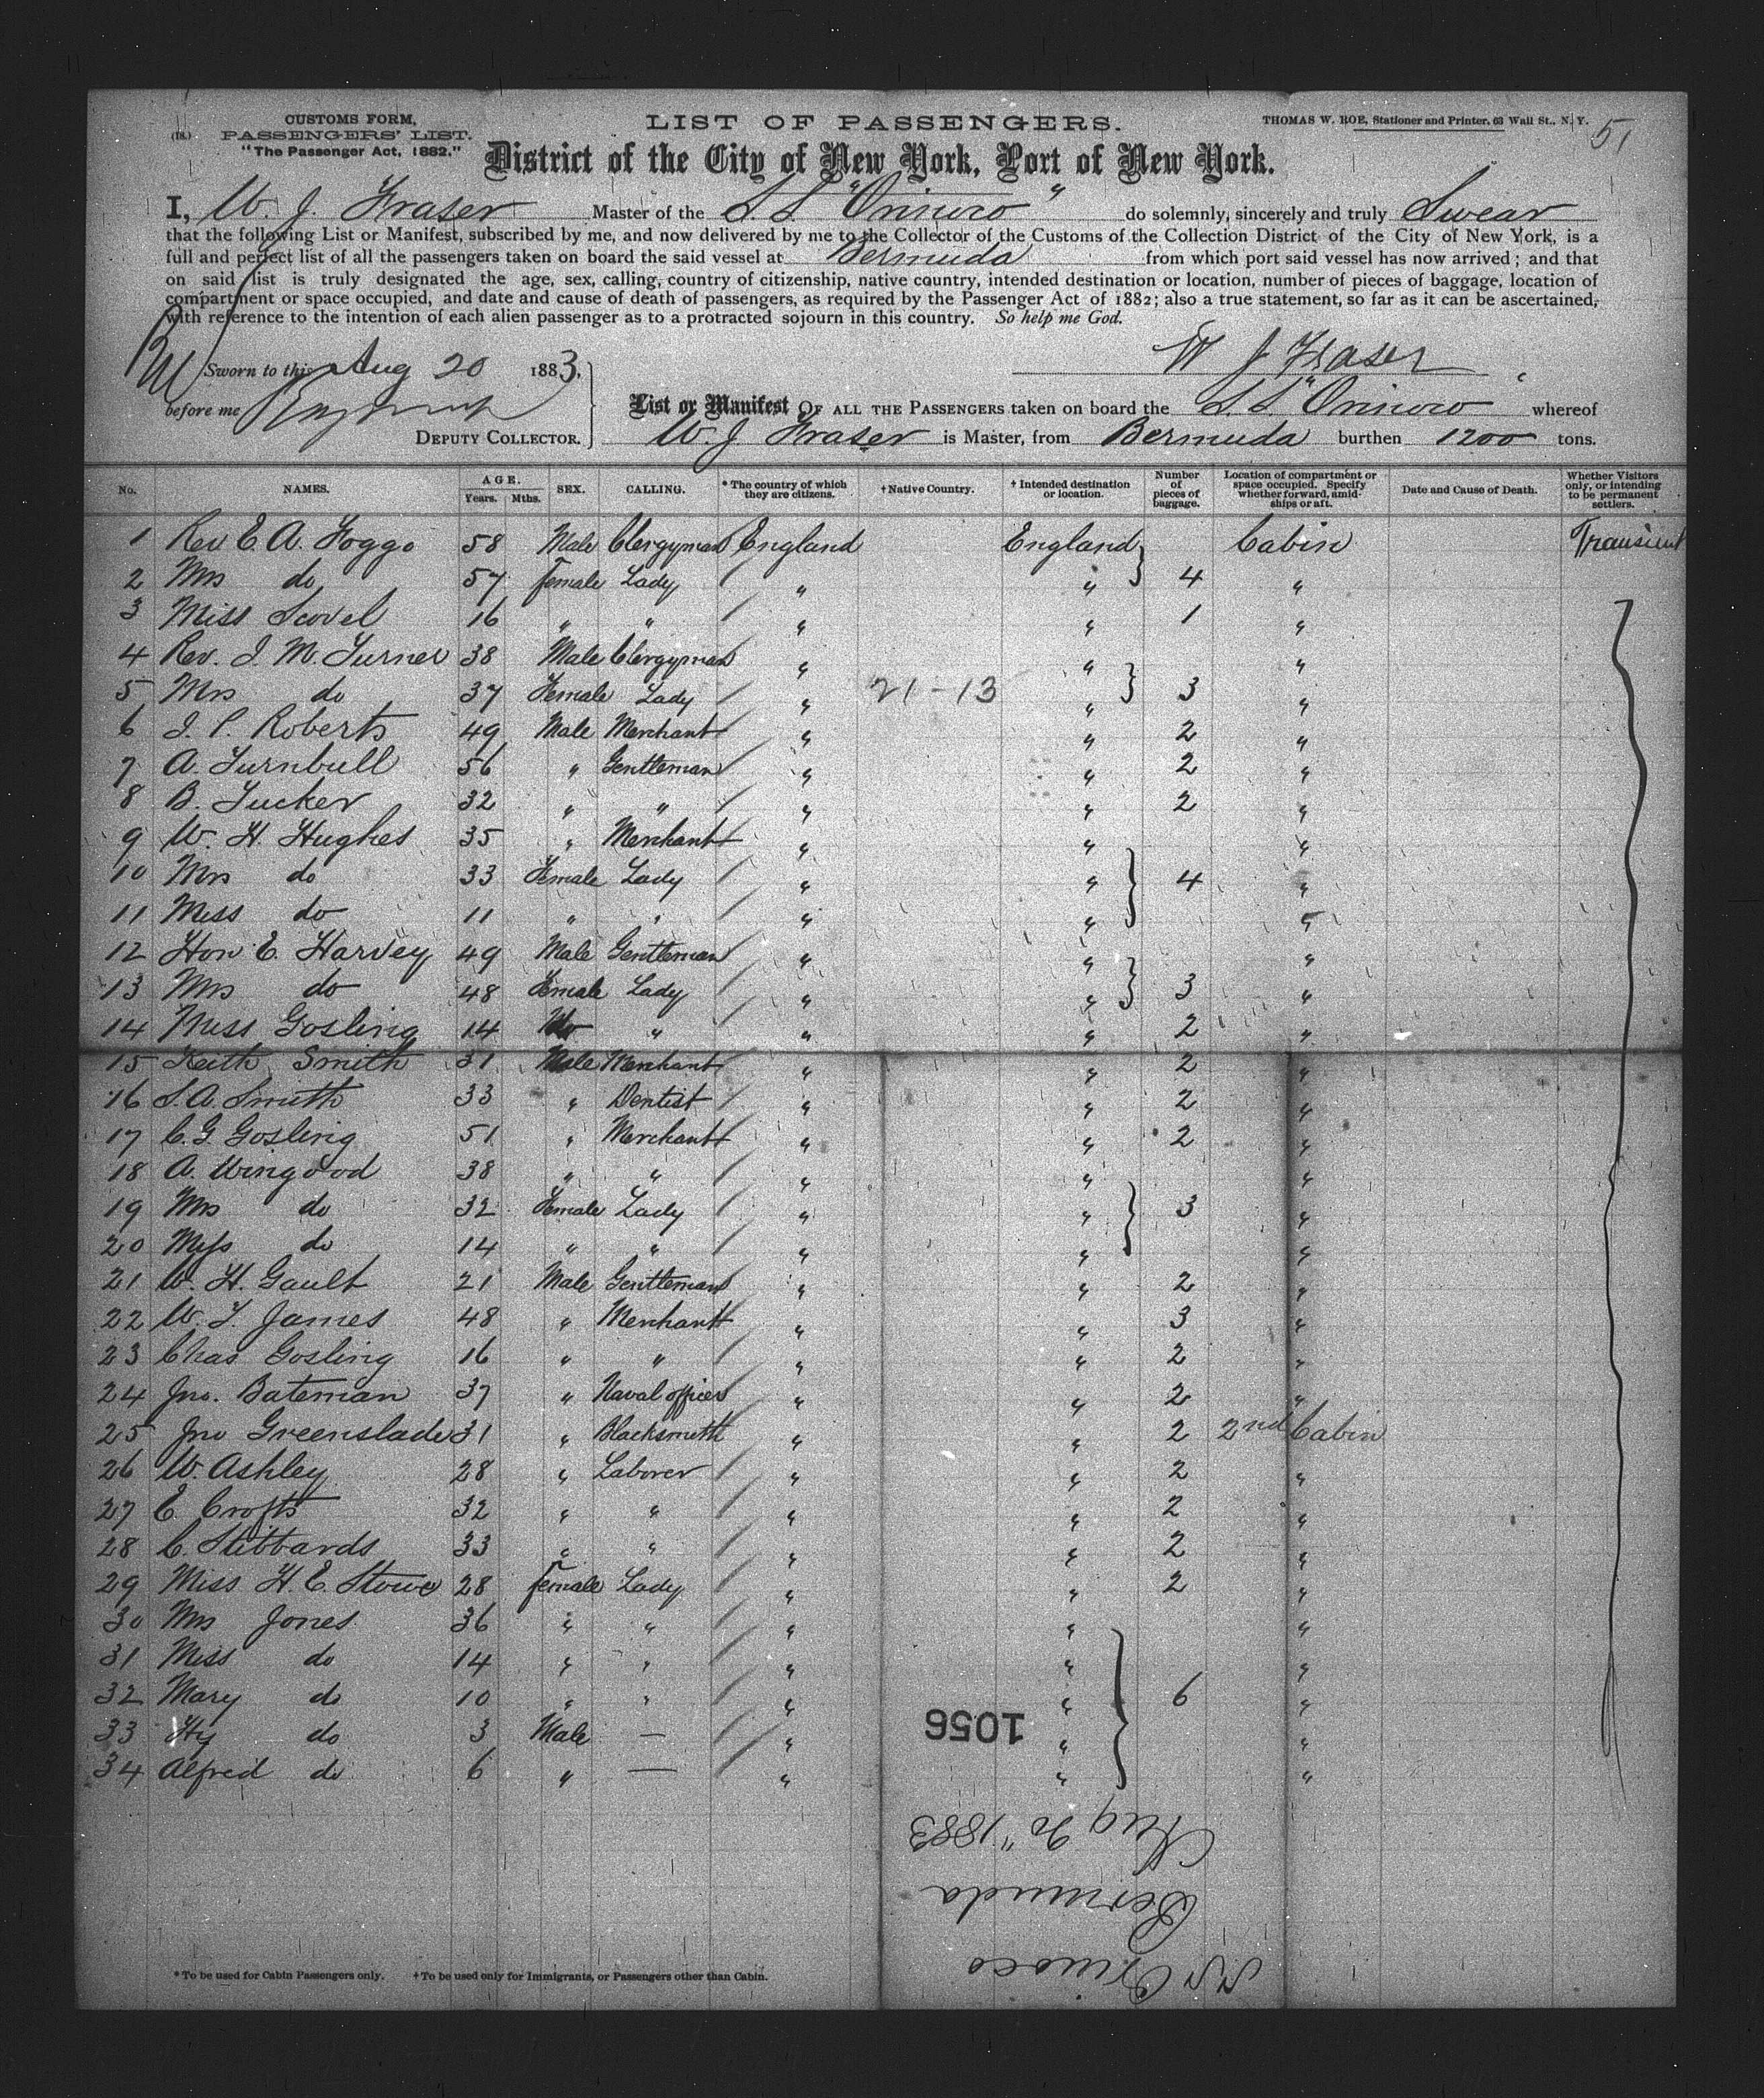 CUSTOMS FORM,
(18.) PASSENGERS' LIST.
"The Passenger Act, 1882."
LIST OF PASSENGERS.
THOMAS W. ROE, Stationer and Printer, 63 Wall St., N. Y.
51
District of the City of New York, Port of New York.
I, W. J. Fraser Master of the S.S. "Orinoco" do solemnly, sincerely and truly Swear
that the following List or Manifest, subscribed by me, and now delivered by me to the Collector of the Customs of the Collection District of the City of New York, is a
full and perfect list of all the passengers taken on board the said vessel at Bermuda from which port said vessel has now arrived; and that
on said list is truly designated the age, sex, calling, country of citizenship, native country, intended destination or location, number of pieces of baggage, location of
compartment or space occupied, and date and cause of death of passengers, as required by the Passenger Act of 1882; also a true statement, so far as it can be ascertained,
with reference to the intention of each alien passenger as to a protracted sojourn in this country. So help me God.
W J Fraser
Sworn to this Aug 20 1883,
before me
DEPUTY COLLECTOR.
List or Manifest OF ALL THE PASSENGERS taken on board the S.S. "Orinoco" whereof
W. J. Fraser is Master, from Bermuda burthen 1200 tons.
No. NAMES. AGE. Years. Mths. SEX. CALLING. * The country of which they are citizens. † Native Country. † Intended destination or location. Number of pieces of baggage. Location of compartment or space occupied. Specify whether forward, amidships or aft. Date and Cause of Death. Whether Visitors only, or intending to be permanent settlers.
1 Rev E. A. Foggo 58 Male Clergyman England England Cabin Transient
2 Mrs do 57 female Lady " " 4 "
3 Miss Scovel 16 " " " " 1 "
4 Rev. J. M. Turner 38 Male Clergyman " " "
5 Mrs do 37 Female Lady " 21-13 " 3 "
6 J. P. Roberts 49 Male Merchant " " 2 "
7 A. Turnbull 56 " Gentleman " " 2 "
8 B. Tucker 32 " " " " 2 "
9 W. H. Hughes 35 " Merchant " " "
10 Mrs do 33 Female Lady " " 4 "
11 Miss do 11 " " " " "
12 Hon E. Harvey 49 Male Gentleman " " "
13 Mrs do 48 Female Lady " " 3 "
14 Miss Gosling 14 " " " 2 "
15 Keith Smith 31 Male Merchant " " 2 "
16 S. A. Smith 33 " Dentist " " 2 "
17 C. G Gosling 51 " Merchant " " 2 "
18 A. Wingood 38 " " " " "
19 Mrs do 32 Female Lady " " 3 "
20 Miss do 14 " " " " "
21 W. H. Gault 21 Male Gentleman " " 2 "
22 W. T. James 48 " Merchant " " 3 "
23 Chas Gosling 16 " " " " 2 "
24 Jno. Bateman 37 " Naval officer " " 2 "
25 Jno Greenslade 31 " Blacksmith " " 2 2nd Cabin
26 W. Ashley 28 " Laborer " " 2 "
27 E. Crofts 32 " " " " 2 "
28 C. Stibbards 33 " " " " 2 "
29 Miss H. E. Stowe 28 female Lady " " 2 "
30 Mrs Jones 36 " " " " "
31 Miss do 14 " " " " "
32 Mary do 10 " " " " 6 "
33 Hy do 3 Male — " " "
34 Alfred do 6 " — " " "
1056
SS Orinoco
Bermuda
Aug 20" 1883
* To be used for Cabin Passengers only. † To be used only for Immigrants, or Passengers other than Cabin.